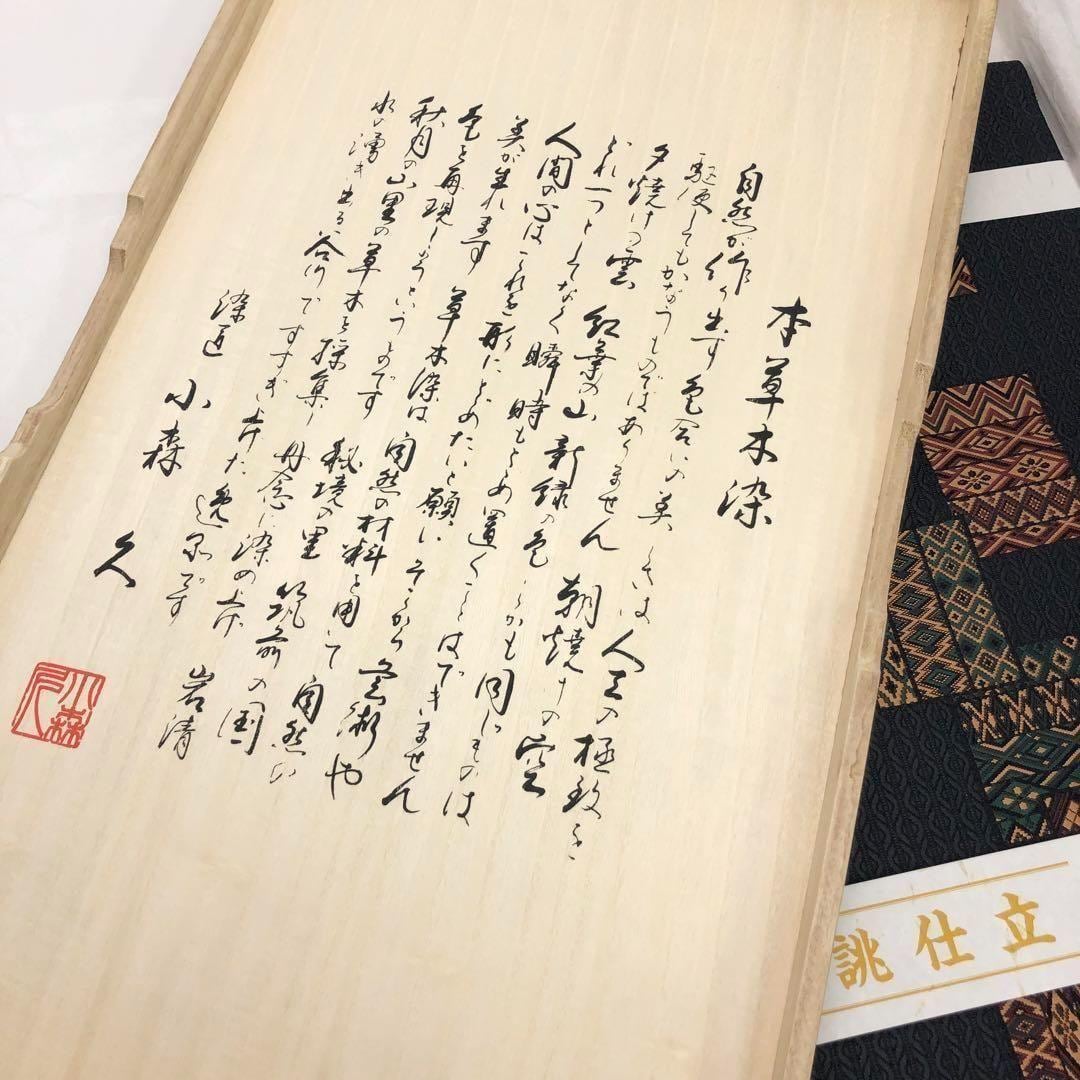 本草木染
自然が作り出す色合いの美しさは 人工の極致を
駆使してもかなうものではありません 朝焼けの空
夕焼けの雲 紅葉の山 新緑の色 しかも同じものは
どれ一つとしてなく 瞬時もとめ置くことはできません
人間の心はこれを形にとめたいと願い そこから芸術や
美が生れます 草木染は自然の材料を用いて 自然の
色を再現しようというものです 秘境の里 筑前の国
秋月の山里の草木を採集し 丹念に染め上げ 岩清
水の湧き出る谷川ですすぎ上げた逸品です
染匠 小森 久
小森久
誂仕立